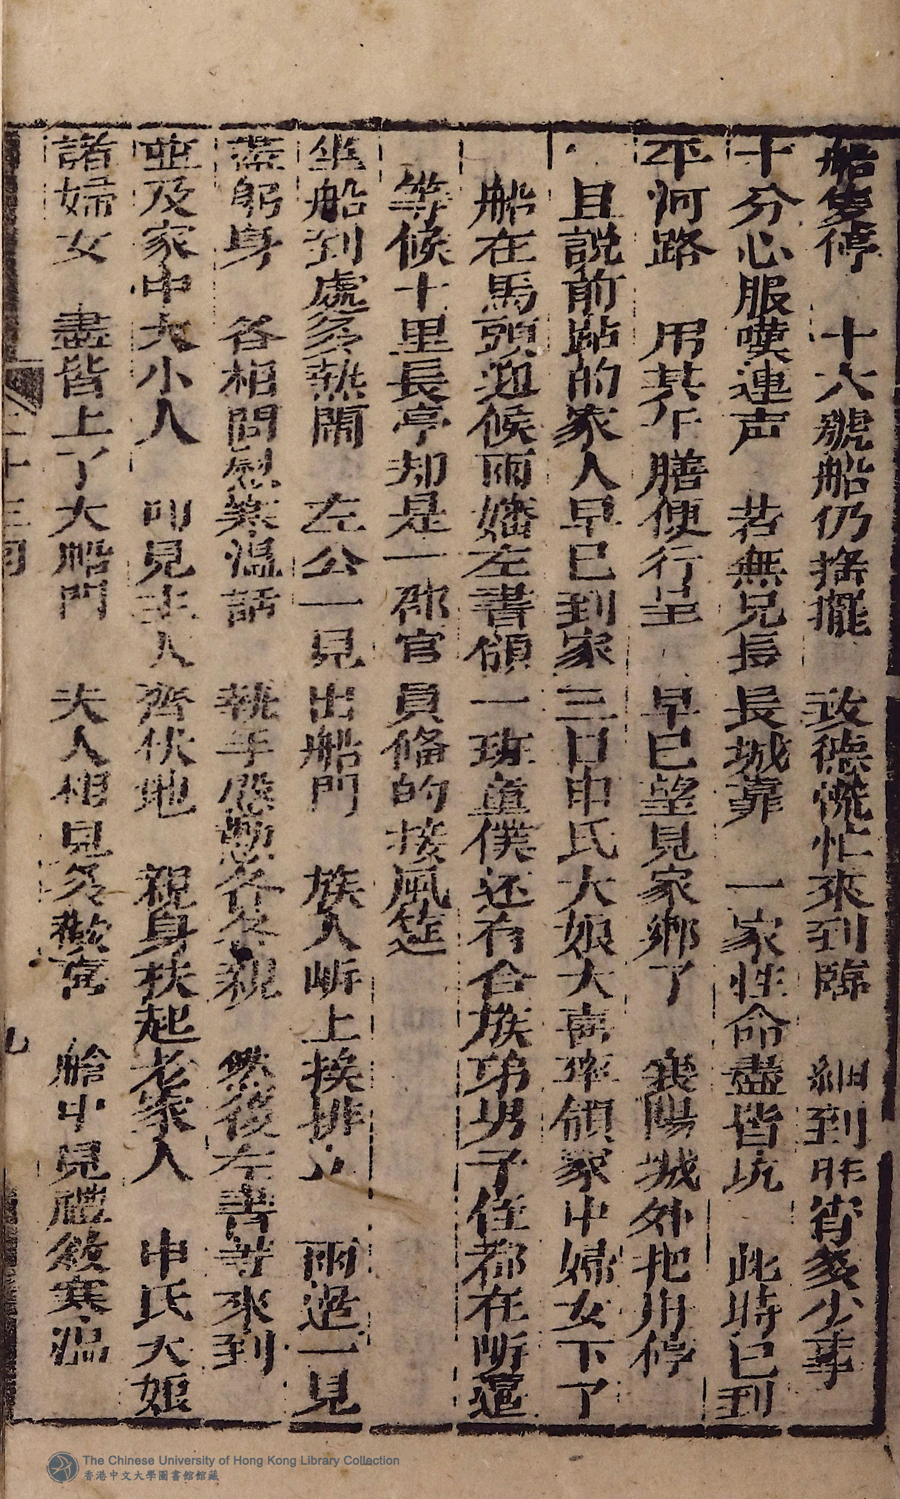 船隻停　十六號船仍摇擺　致德慌忙來到臨　細到昨宵多少事
十分心服嘆連声　若無兄長長城靠　一家性命盡皆坑　此時已到
平河路　用其午膳便行呈　早已望見家鄉了　襄陽城外把舟停
且説前跕的家人早已到家三日申氏大娘大喜率領家中婦女下了
船在馬頭迎候雨嬏左書領一班童僕还有合族弟男子侄都在岍還
等候十里長亭却是一郡官員俻的接風筵
坐船到處多熱鬧　左公一見出船門　族人岍上挨排立　兩邉一見
盡躬身　各相問慰寒温話　執手慇懃各各親　然後左書等來到
並及家中大小人　叩見主人齊伏地　親身扶起老家人　申氏大娘
諸婦女　盡皆上了大船門　夫人相見多歡喜　艙中見禮敘寒温
二十三囘
九
The Chinese University of Hong Kong Library Collection
香港中文大學圖書館館藏